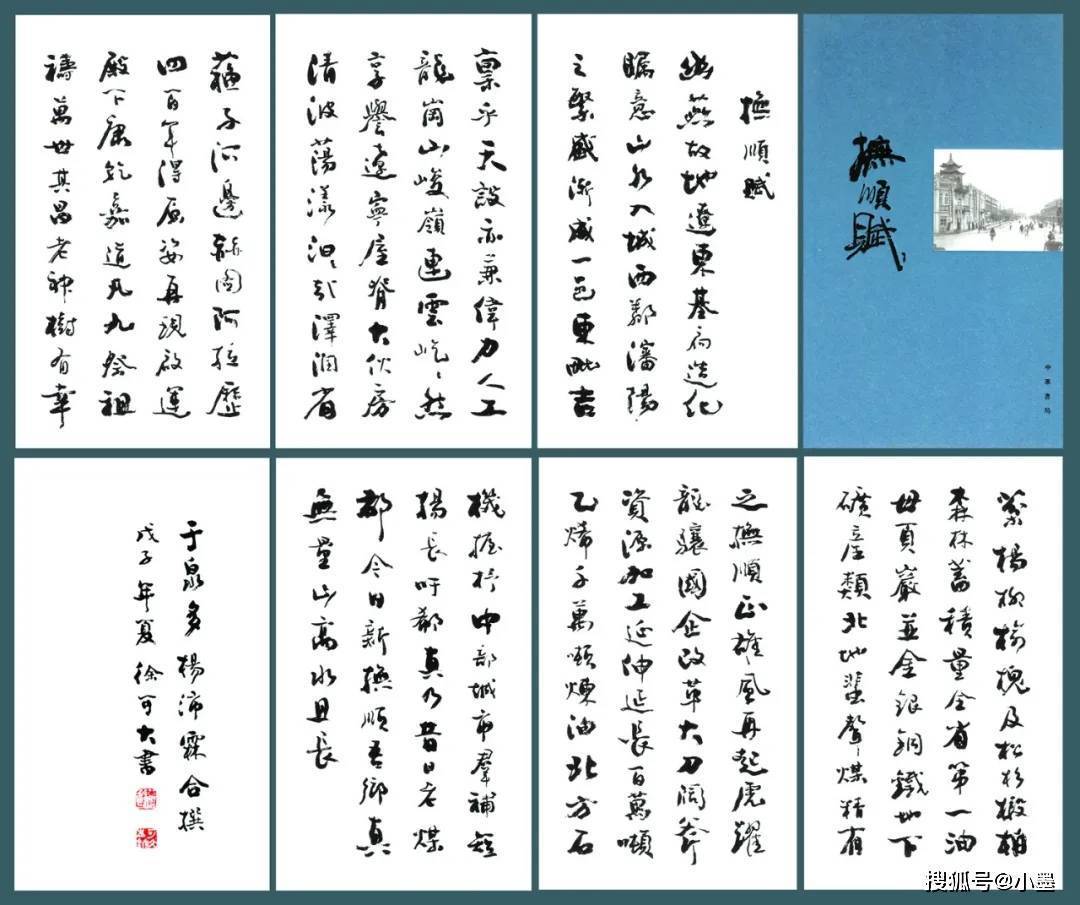 撫順賦
中華書局
撫順賦
幽燕故地遼東基府造化
矚意山水入城西鄰瀋陽
之繫盛漸成一邑東毗吉
稟乎天設亦兼偉力人工
龍崗山峻嶺連雲屹屹然
享譽遼寧屋脊大伙房
清波蕩漾汩汩澤潤省
蘇子河邊赫圖阿拉歷
四百年滄桑再現啟運
殿下康乾嘉道凡九祭祖
禱萬世其昌老神樹有幸
楊柳榆槐及松杉椴柞
森林蓄積量全省第一油
母頁巖並金銀銅鐵地下
礦產類北地蜚聲煤精有
之撫順正雄風再起虎躍
龍驤國企改革大刀闊斧
資源加工延伸延長百萬噸
乙烯千萬噸煉油北方石
機握於中部城市群補短
揚長吁鄰真乃昔日名煤
都今日新撫順吾鄉真
無量山高水且長
于泉多 楊沛霖合撰
戊子年夏 徐可大書
搜狐号@小墨